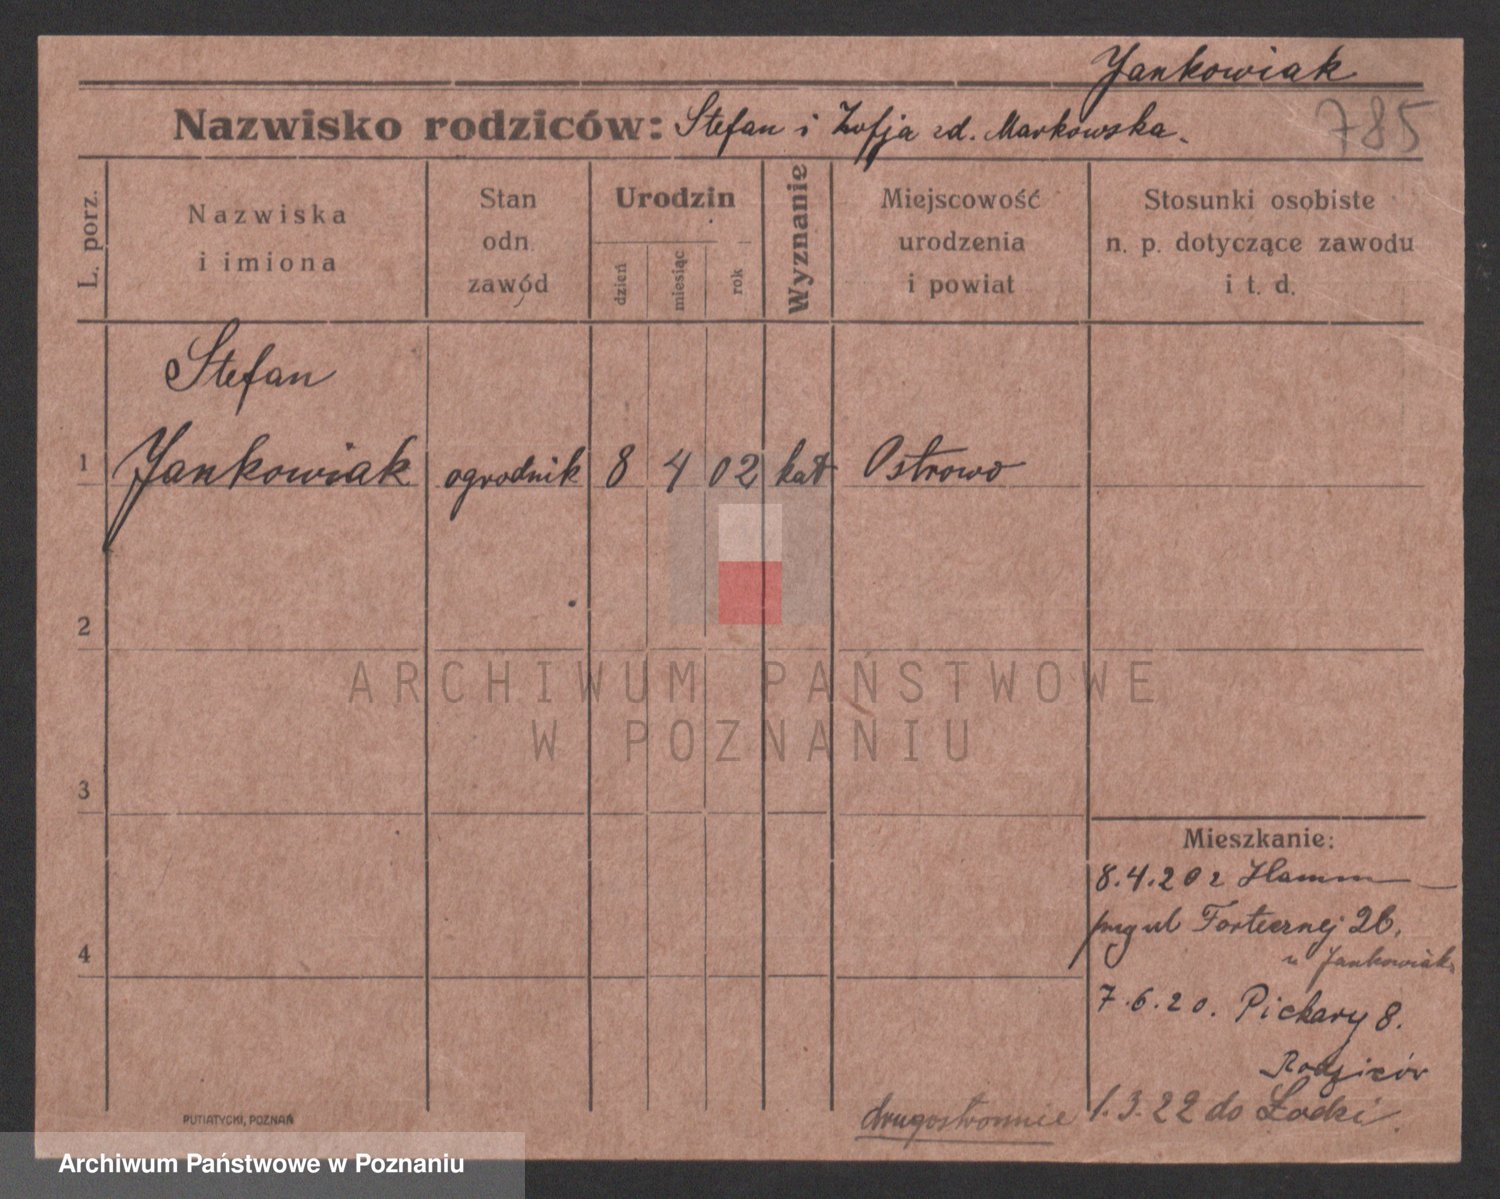 Jankowiak
Nazwisko rodziców: Stefan i Zofja zd. Markowska.
785
L. porz.
Nazwiska
i imiona
Stan
odn.
zawód
Urodzin
dzień
miesiąc
rok
Wyznanie
Miejscowość
urodzenia
i powiat
Stosunki osobiste
n. p. dotyczące zawodu
i t. d.
Stefan
1 Jankowiak ogrodnik 8 4 02 kat Ostrowo
2
ARCHIWUM PAŃSTWOWE
W POZNANIU
3
Mieszkanie:
8.4.20 z Hamm
ul Fortecznej 26,
4
u Jankowiak
7.6.20. Piekary 8.
Rodziców
drugostronnie 1.3.22 do Łodzi.
PUTIATYCKI, POZNAŃ
Archiwum Państwowe w Poznaniu